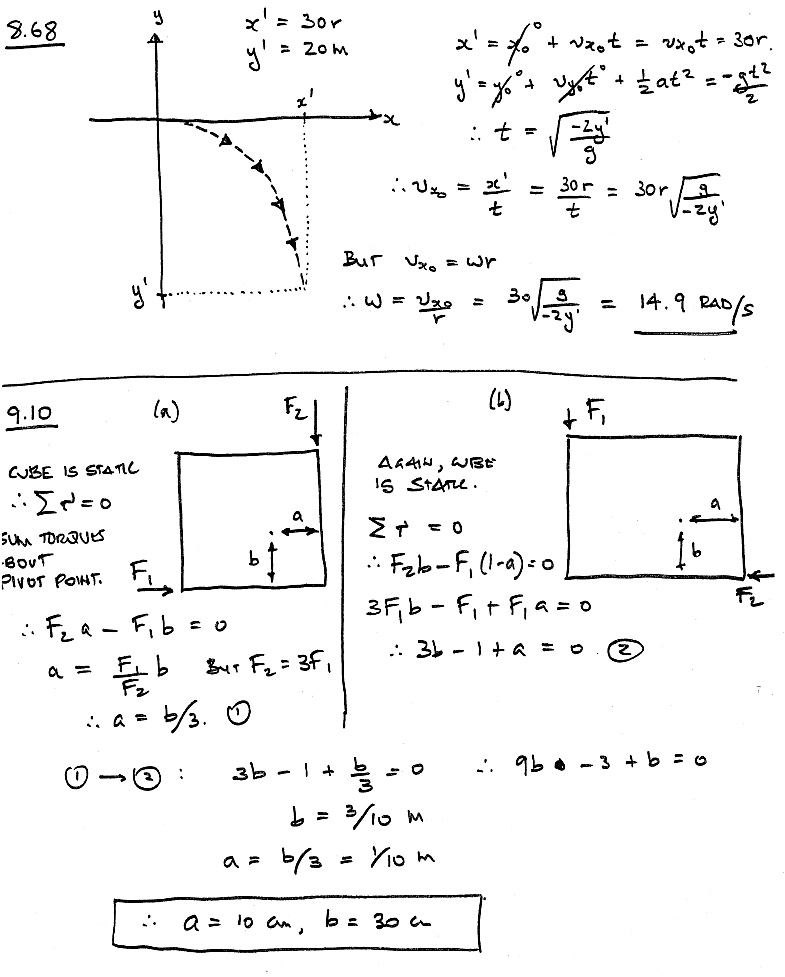 8.68
y
x' = 30r
y' = 20m
x'
x
y'
x' = x₀ + vx₀t = vx₀t = 30r.
y' = y₀ + vy₀t + ½at² = -gt²/2
∴ t = √(-2y'/g)
∴ vx₀ = x'/t = 30r/t = 30r √(g/-2y')
BUT vx₀ = ωr
∴ ω = vx₀/r = 30√(g/-2y') = 14.9 RAD/S
9.10
(a)
F₂
CUBE IS STATIC
∴ Στ = 0
SUM TORQUES
BOUT
PIVOT POINT.
a
b
F₁
∴ F₂a - F₁b = 0
a = F₁/F₂ b BUT F₂ = 3F₁
∴ a = b/3. ①
(b)
F₁
AGAIN, CUBE
IS STATIC.
Στ = 0
a
b
F₂
∴ F₂b - F₁(1-a) = 0
3F₁b - F₁ + F₁a = 0
∴ 3b - 1 + a = 0 ②
① → ② : 3b - 1 + b/3 = 0 ∴ 9b - 3 + b = 0
b = 3/10 M
a = b/3 = 1/10 M
∴ a = 10 cm, b = 30 cm